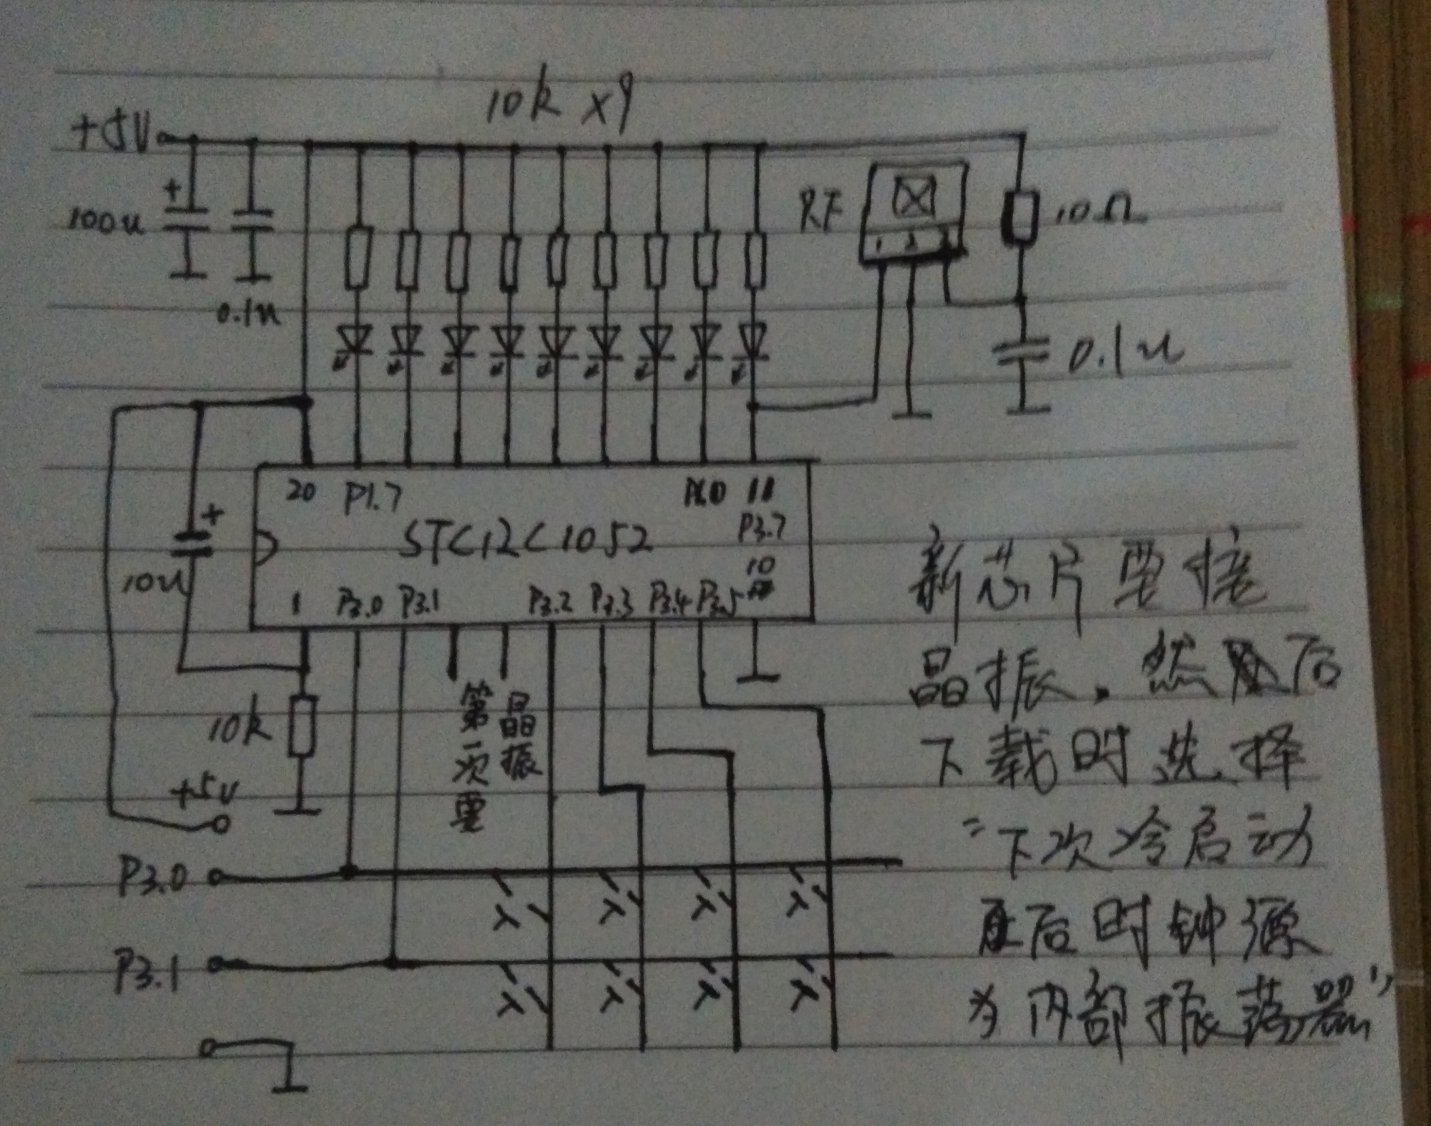 10k x9
+5V
100u
0.1u
RF
1 2 3
10Ω
0.1u
20 P1.7
P1.0 11
P3.7
STC12C1052
10
1 P3.0 P3.1 P3.2 P3.3 P3.4 P3.5
+
+
10u
10k
第一次要
晶振
+5V
P3.0
P3.1
新芯片要接
晶振。然后
下载时选择
"下次冷启动
后时钟源
为内部振荡器"